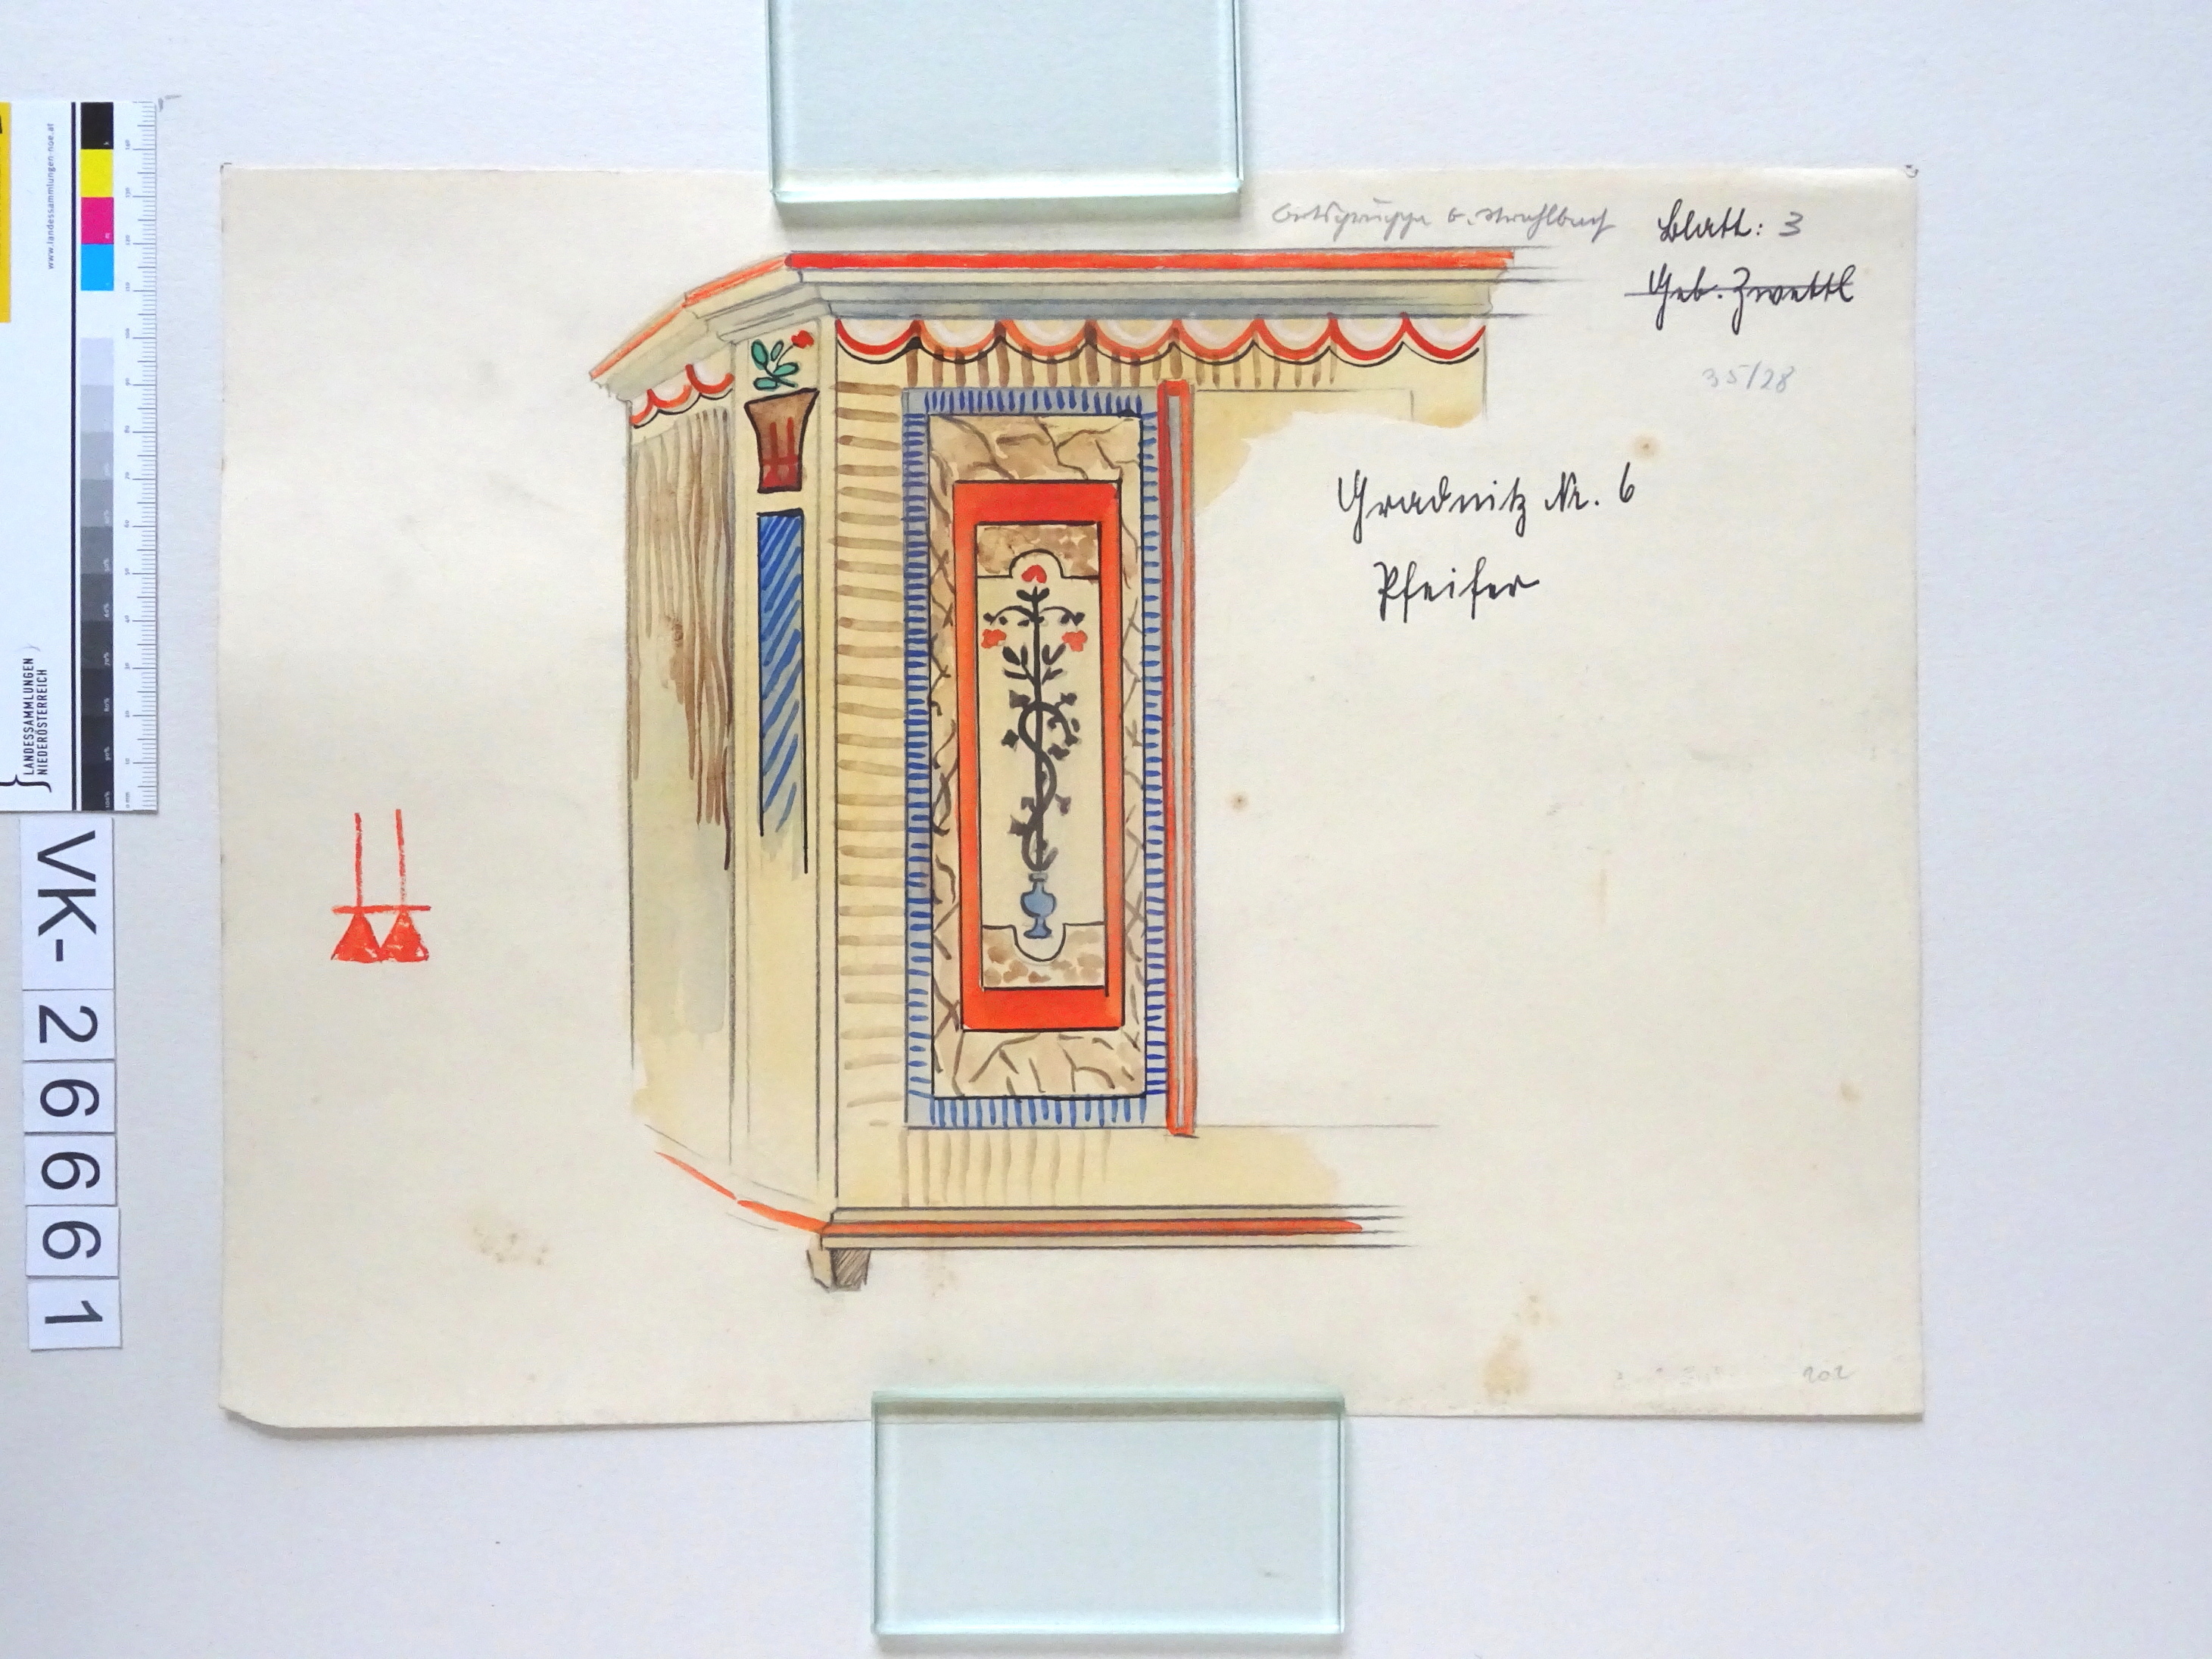 www.landessammlungen.noe.at
LANDESSAMMLUNGEN
NIEDERÖSTERREICH
VK-26661
Ortsgruppe G. Strahlbach
Blatt: 3
Geb. Zwettl
35/28
Gradnitz Nr. 6
Pfeifer
202